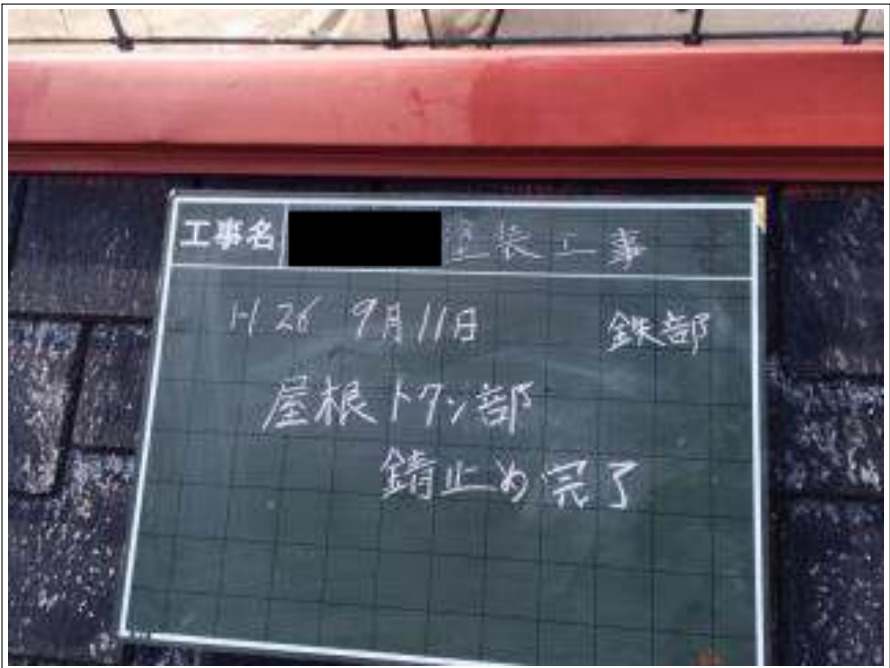 工事名 塗装工事
H26 9月11日 鉄部
屋根トタン部
錆止め完了